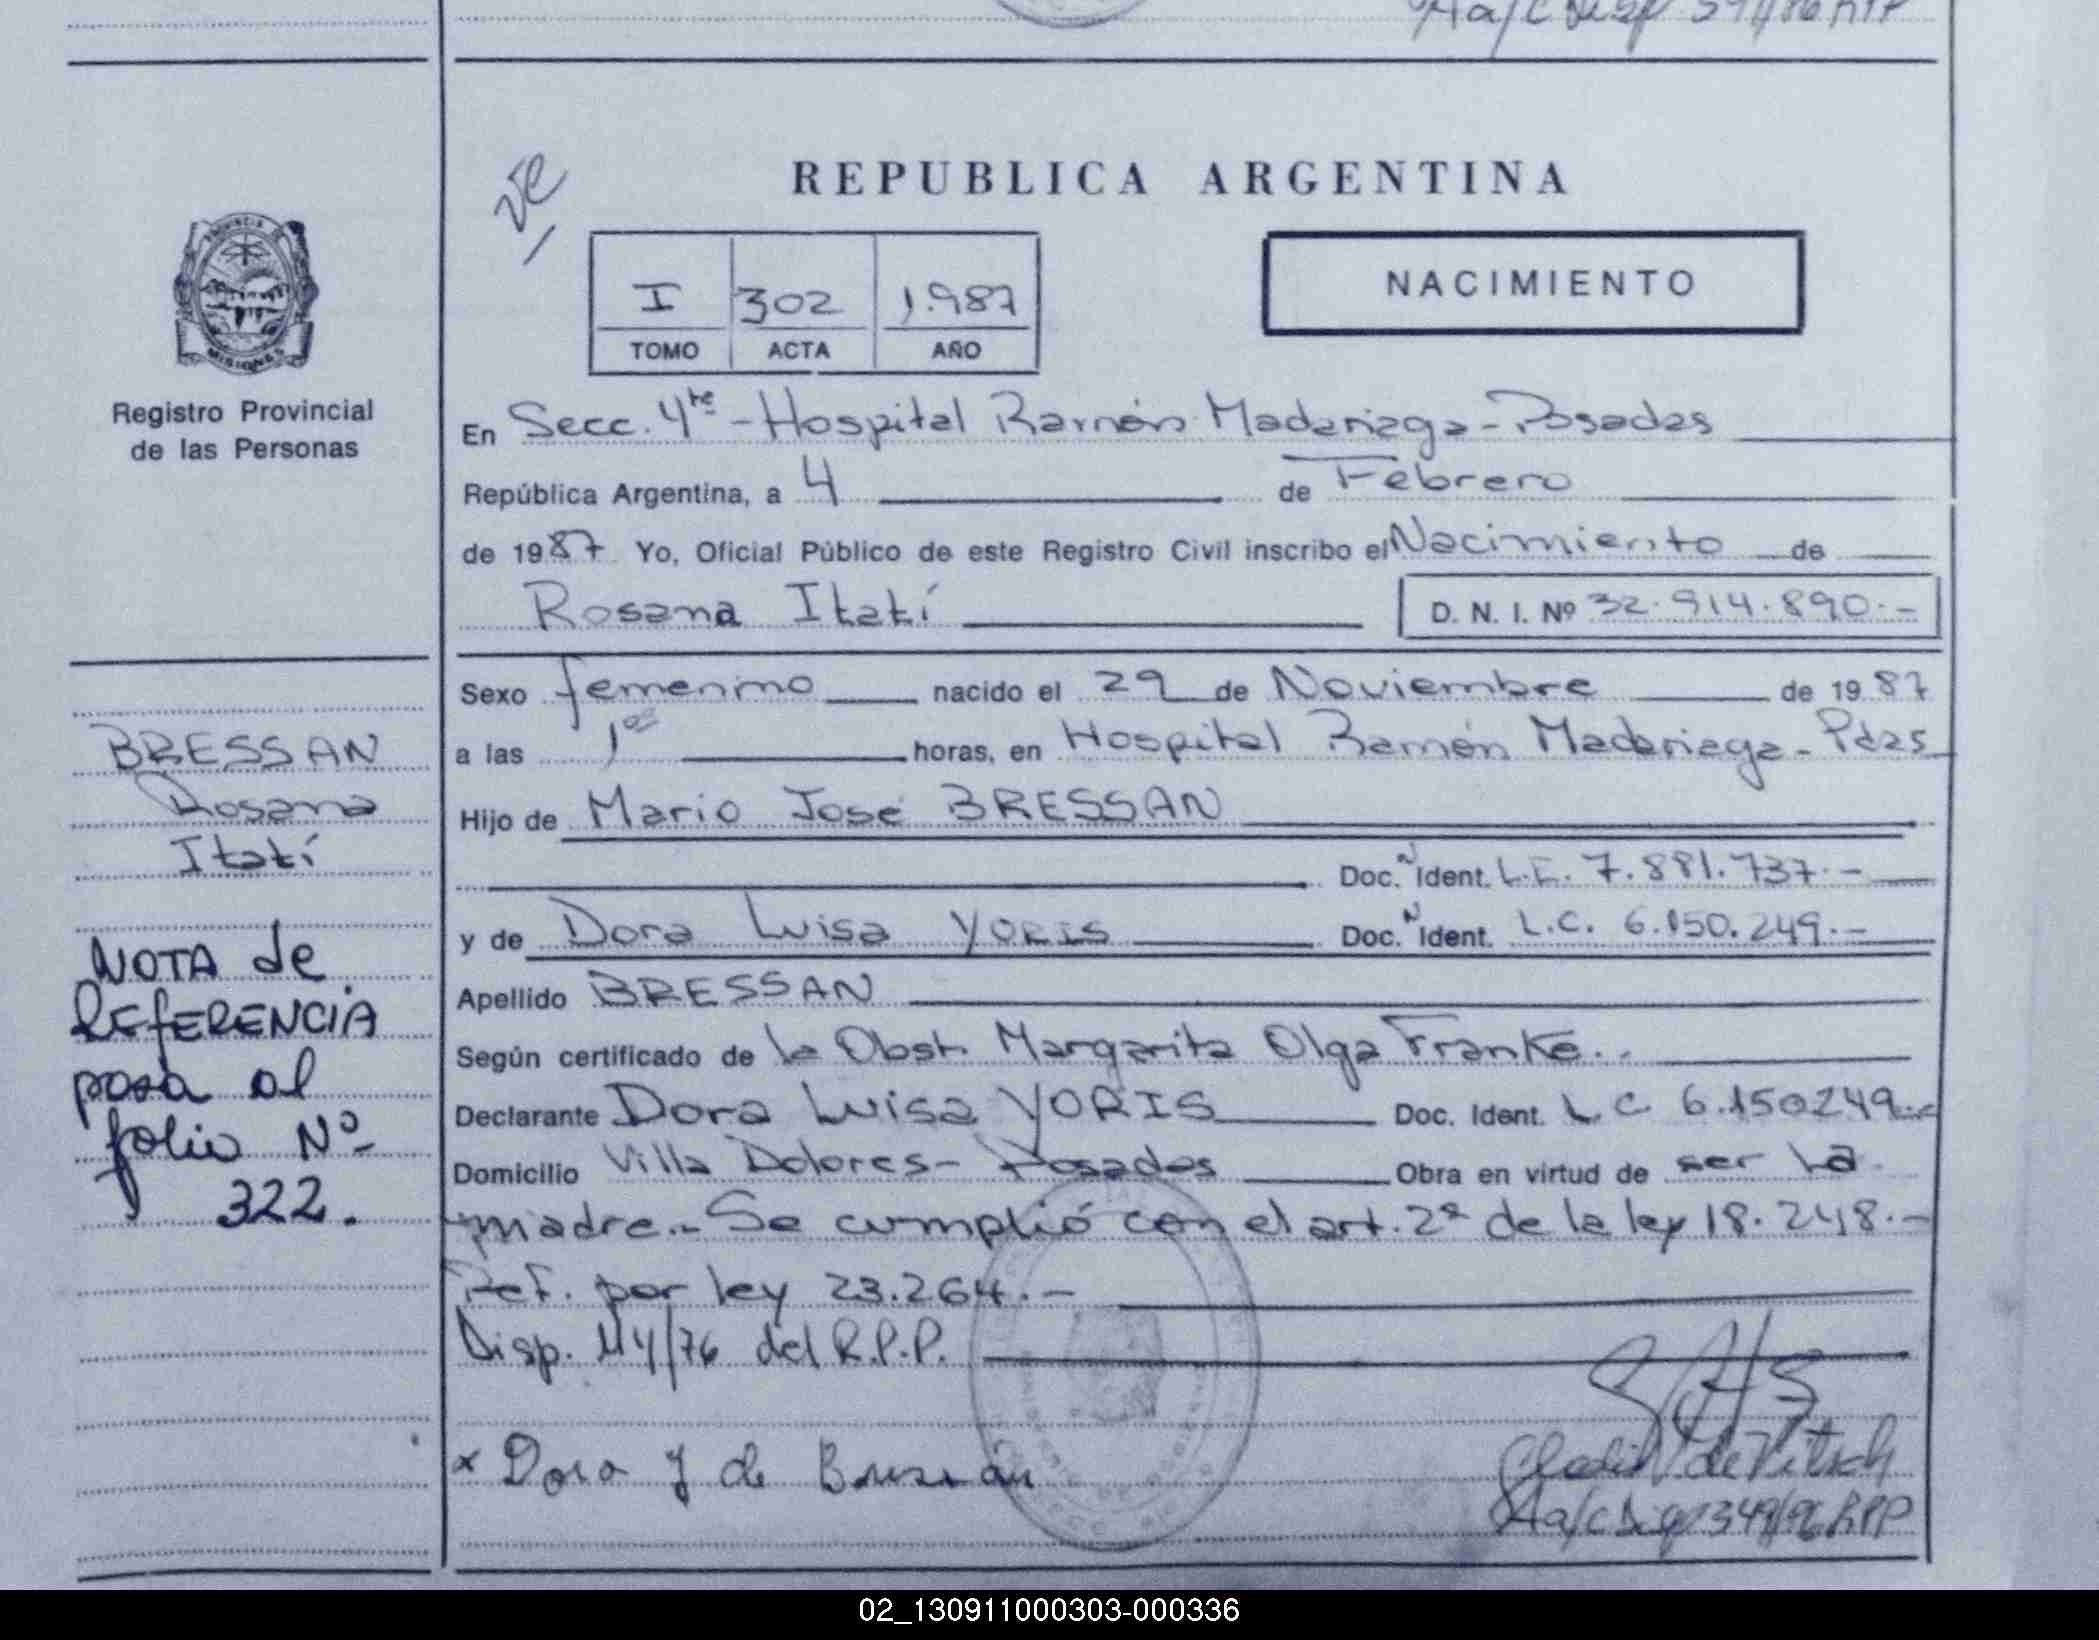 REPUBLICA ARGENTINA
I 302 1.987
TOMO ACTA AÑO
NACIMIENTO
PROVINCIA DE
MISIONES
Registro Provincial
de las Personas
En Secc. 4ta - Hospital Ramón Madariaga - Posadas
República Argentina, a 4 de Febrero
de 1987 Yo, Oficial Público de este Registro Civil inscribo el Nacimiento de
Rosana Itatí D. N. I. Nº 32.914.890.-
Sexo femenino nacido el 29 de Noviembre de 1987
a las 1 horas, en Hospital Ramón Madariaga - Pdas
Hijo de Mario José BRESSAN
Doc. N Ident. L.E. 7.881.737.-
y de Dora Luisa YORIS Doc. N Ident. L.C. 6.150.249.-
Apellido BRESSAN
Según certificado de la Obst. Margarita Olga Franke..
Declarante Dora Luisa YORIS Doc. Ident. L.C 6.150249.-
Domicilio Villa Dolores - Posadas Obra en virtud de ser la
madre.- Se cumplió con el art. 2º de la ley 18.248.-
Ref. por ley 23.264.-
Disp. 114/76 del R.P.P.
x Dora Y de Bressán
BRESSAN
Rosana
Itatí
NOTA de
REfERENCIA
pasa al
folio Nº
322.
02_130911000303-000336